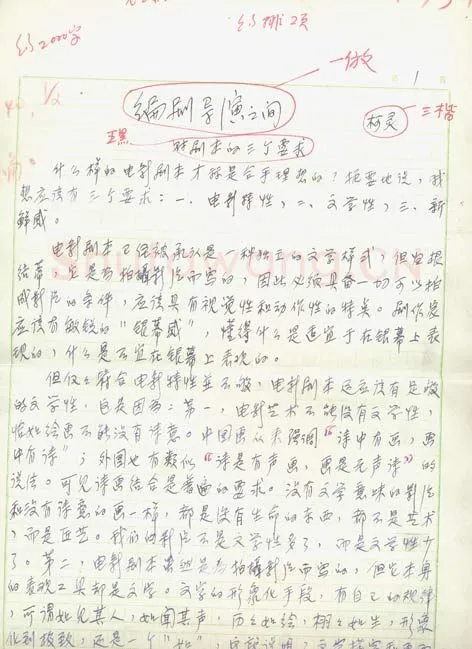 约2000字
约排2页
一做
1
编剧导演之间
柯灵
三楷
对剧本的三个要求
什么样的电影剧本才算是合乎理想的？扼要地说，我
想应该有三个要求：一、电影特性，二、文学性，三、新
鲜感。
电影剧本已经被承认是一种独立的文学样式，但归根
结蒂，它是为拍摄影片而写的，因此必须具备一切可以拍
成影片的条件，应该具有视觉性和动作性的特点。剧作家
应该有敏锐的“银幕感”，懂得什么是适宜于在银幕上表
现的，什么是不宜在银幕上表现的。
但仅仅符合电影特性并不够，电影剧本还应该有足够
的文学性，这是因为：第一，电影艺术不能没有文学性，
恰如绘画不能没有诗意。中国画从来强调“诗中有画，画
中有诗”；外国也有类似“诗是有声画，画是无声诗”的
说法。可见诗画结合是普遍的要求。没有文学意味的影片
和没有诗意的画一样，都是没有生命的东西，都不是艺术
，而是匠艺。我们的影片不是文学性多了，而是文学性少
了。第二，电影剧本虽然是为拍摄影片而写的，但它本身
的表现工具却是文学。文学的形象化手段，有自己的规律
，可谓如见其人，如闻其声，历历如绘，栩栩如生，形象
化到极致，还是一个“如”，